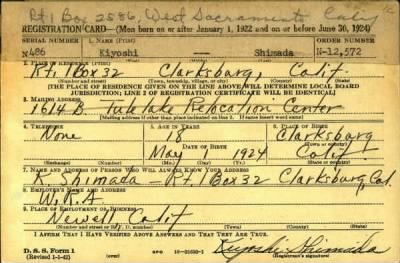 Rt 1 Box 2586, West Sacramento Calif
REGISTRATION CARD—(Men born on or after January 1, 1922 and on or before June 30, 1924)
SERIAL NUMBER 1. NAME (Print) ORDER NUMBER
N486 Kiyoshi Shimada N-12,572
2. PLACE OF RESIDENCE (Print)
Rt. 1 Box 32 Clarksburg, Calif
(Number and street) (Town, township, village, or city) (County) (State)
[THE PLACE OF RESIDENCE GIVEN ON THE LINE ABOVE WILL DETERMINE LOCAL BOARD
JURISDICTION; LINE 2 OF REGISTRATION CERTIFICATE WILL BE IDENTICAL]
3. MAILING ADDRESS
1614 B Tulelake Relocation Center
[Mailing address if other than place indicated on line 2. If same insert word same]
4. TELEPHONE 5. AGE IN YEARS 6. PLACE OF BIRTH
None 18 Clarksburg
DATE OF BIRTH (Town or county)
May 1924 Calif.
(Exchange) (Number) (Mo.) (Day) (Yr.) (State or country)
7. NAME AND ADDRESS OF PERSON WHO WILL ALWAYS KNOW YOUR ADDRESS
K. Shimada — Rt. 1 Box 32 Clarksburg, Cal.
8. EMPLOYER'S NAME AND ADDRESS
W.R.A
9. PLACE OF EMPLOYMENT OR BUSINESS
Newell Calif
(Number and street or R. F. D. number) (Town) (County) (State)
I AFFIRM THAT I HAVE VERIFIED ABOVE ANSWERS AND THAT THEY ARE TRUE.
D. S. S. Form 1
(Revised 1-1-42) Kiyoshi Shimada